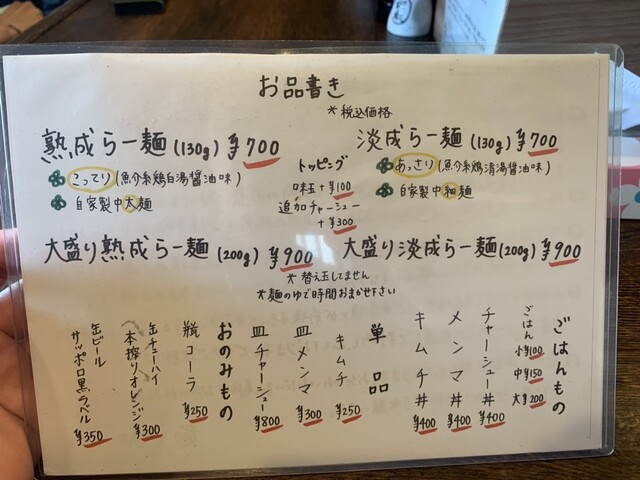 お品書き
＊税込価格
熟成らー麺(130g) ¥700
こってり(魚介系鶏白湯醤油味)
自家製中太麺
トッピング
味玉+¥100
追加チャーシュー
+¥300
淡成らー麺(130g) ¥700
あっさり(魚介系鶏清湯醤油味)
自家製中細麺
大盛り熟成らー麺(200g) ¥900
大盛り淡成らー麺(200g) ¥900
＊替え玉してません
＊麺のゆで時間おまかせ下さい
ごはんもの
ごはん 小¥100
中¥150
大¥200
チャーシュー丼 ¥400
メンマ丼 ¥400
キムチ丼 ¥400
単品
キムチ ¥250
皿メンマ ¥300
皿チャーシュー ¥800
おのみもの
瓶コーラ ¥250
缶チューハイ
(本搾りオレンジ) ¥300
缶ビール
サッポロ黒ラベル ¥350